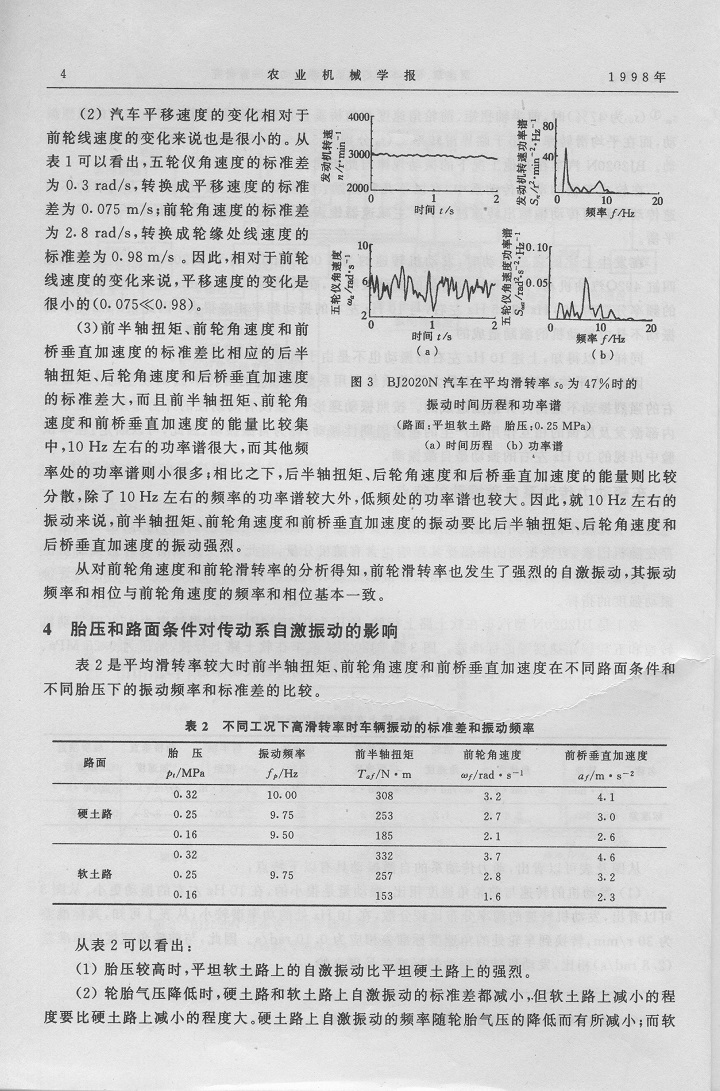 4 农业机械学报 1998年
(2) 汽车平移速度的变化相对于
前轮线速度的变化来说也是很小的。从
表1可以看出,五轮仪角速度的标准差
为0.3 rad/s,转换成平移速度的标准
差为0.075 m/s;前轮角速度的标准差
为2.8 rad/s,转换成轮缘处线速度的
标准差为0.98 m/s 。因此,相对于前轮
线速度的变化来说,平移速度的变化是
很小的(0.075≪0.98)。
(3)前半轴扭矩、前轮角速度和前
桥垂直加速度的标准差比相应的后半
轴扭矩、后轮角速度和后桥垂直加速度
的标准差大,而且前半轴扭矩、前轮角
速度和前桥垂直加速度的能量比较集
中,10 Hz左右的功率谱很大,而其他频
发动机转速
n/r·min⁻¹
4000
3000
2000
0 1 2
时间 t/s
发动机转速功率谱
80
40
0 10 20
频率 f/Hz
五轮仪角速度
10
6
2
0 1 2
时间 t/s
(a)
五轮仪角速度功率谱
0.10
0.05
0 10 20
频率 f/Hz
(b)
图3 BJ2020N汽车在平均滑转率s₀为47%时的
振动时间历程和功率谱
(路面:平坦软土路 胎压:0.25 MPa)
(a)时间历程 (b)功率谱
率处的功率谱则小很多;相比之下,后半轴扭矩、后轮角速度和后桥垂直加速度的能量则比较
分散,除了10 Hz左右的频率的功率谱较大外,低频处的功率谱也较大。因此,就10 Hz左右的
振动来说,前半轴扭矩、前轮角速度和前桥垂直加速度的振动要比后半轴扭矩、后轮角速度和
后桥垂直加速度的振动强烈。
从对前轮角速度和前轮滑转率的分析得知,前轮滑转率也发生了强烈的自激振动,其振动
频率和相位与前轮角速度的频率和相位基本一致。
4 胎压和路面条件对传动系自激振动的影响
表2是平均滑转率较大时前半轴扭矩、前轮角速度和前桥垂直加速度在不同路面条件和
不同胎压下的振动频率和标准差的比较。
表2 不同工况下高滑转率时车辆振动的标准差和振动频率
路面 胎 压 振动频率 前半轴扭矩 前轮角速度 前桥垂直加速度
pₜ/MPa fₚ/Hz T_af/N·m ω_f/rad·s⁻¹ a_f/m·s⁻²
0.32 10.00 308 3.2 4.1
硬土路 0.25 9.75 253 2.7 3.0
0.16 9.50 185 2.1 2.6
0.32 332 3.7 4.6
软土路 0.25 9.75 257 2.8 3.2
0.16 153 1.6 2.3
从表2可以看出:
(1) 胎压较高时,平坦软土路上的自激振动比平坦硬土路上的强烈。
(2) 轮胎气压降低时,硬土路和软土路上自激振动的标准差都减小,但软土路上减小的程
度要比硬土路上减小的程度大。硬土路上自激振动的频率随轮胎气压的降低而有所减小;而软